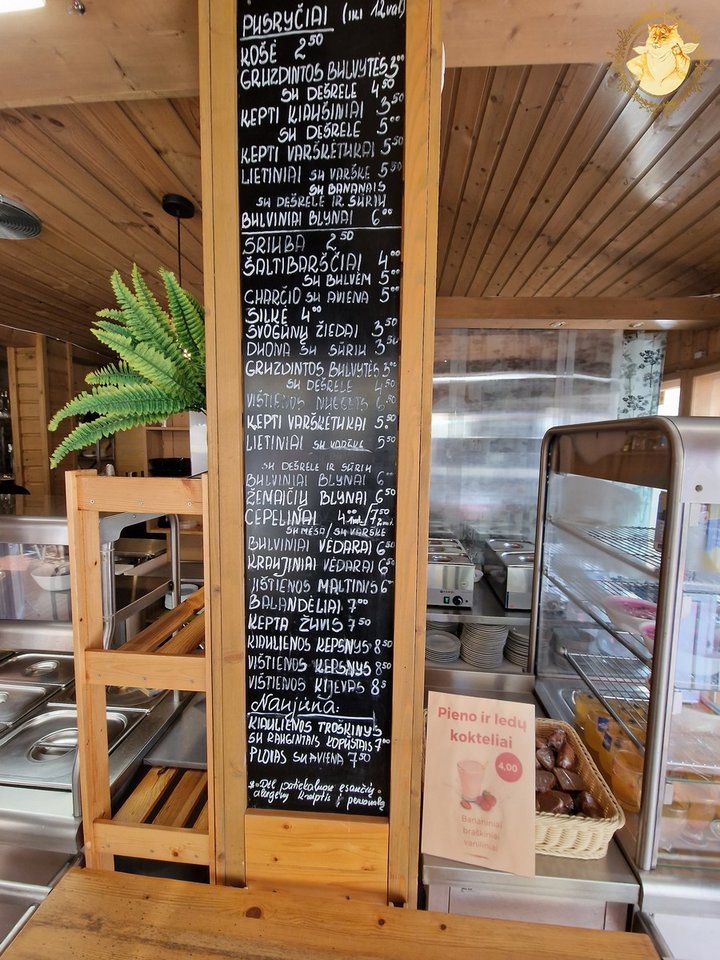 PUSRYČIAI (iki 12val)
KOŠĖ 2⁵⁰
GRUZDINTOS BULVYTĖS 3⁰⁰
SU DEŠRELE 4⁵⁰
KEPTI KIAUŠINIAI 3⁵⁰
SU DEŠRELE 5⁰⁰
KEPTI VARŠKĖTUKAI 5⁵⁰
LIETINIAI SU VARŠKE 5⁵⁰
SU BANANAIS
SU DEŠRELE IR SŪRIU
BULVINIAI BLYNAI 6⁰⁰
SRIUBA 2⁵⁰
ŠALTIBARŠČIAI 4⁰⁰
SU BULVĖM 5⁰⁰
CHARČIO SU AVIENA 5⁰⁰
SILKĖ 4⁰⁰
SVOGŪNŲ ŽIEDAI 3⁵⁰
DUONA SU SŪRIU 3⁵⁰
GRUZDINTOS BULVYTĖS 3⁰⁰
SU DEŠRELE 4⁵⁰
VIŠTIENOS NUGETS 6⁵⁰
KEPTI VARŠKĖTUKAI 5⁵⁰
LIETINIAI SU VARŠKE 5⁵⁰
SU DEŠRELE IR SŪRIU
BULVINIAI BLYNAI 6⁰⁰
ŽEMAIČIŲ BLYNAI 6⁵⁰
CEPELINAI 4⁰⁰ 1vnt./7⁵⁰ 2vnt.
SU MĖSA/SU VARŠKE
BULVINIAI VĖDARAI 6⁵⁰
KRAUJINIAI VĖDARAI 6⁵⁰
VIŠTIENOS MALTINIS 6⁰⁰
BALANDĖLIAI 7⁰⁰
KEPTA ŽUVIS 7⁵⁰
KIAULIENOS KEPSNYS 8⁵⁰
VIŠTIENOS KEPSNYS 8⁵⁰
VIŠTIENOS KIJEVAS 8⁵
Naujiena:
KIAULIENOS TROŠKINYS
SU RAUGINTAIS KOPŪSTAIS 7⁰⁰
PLOVAS SU AVIENA 7⁵⁰
* Dėl patiekaluose esančių
alergenų kreiptis į personalą
Pieno ir ledų
kokteliai
4,00
Bananiniai
braškiniai
vaniliniai